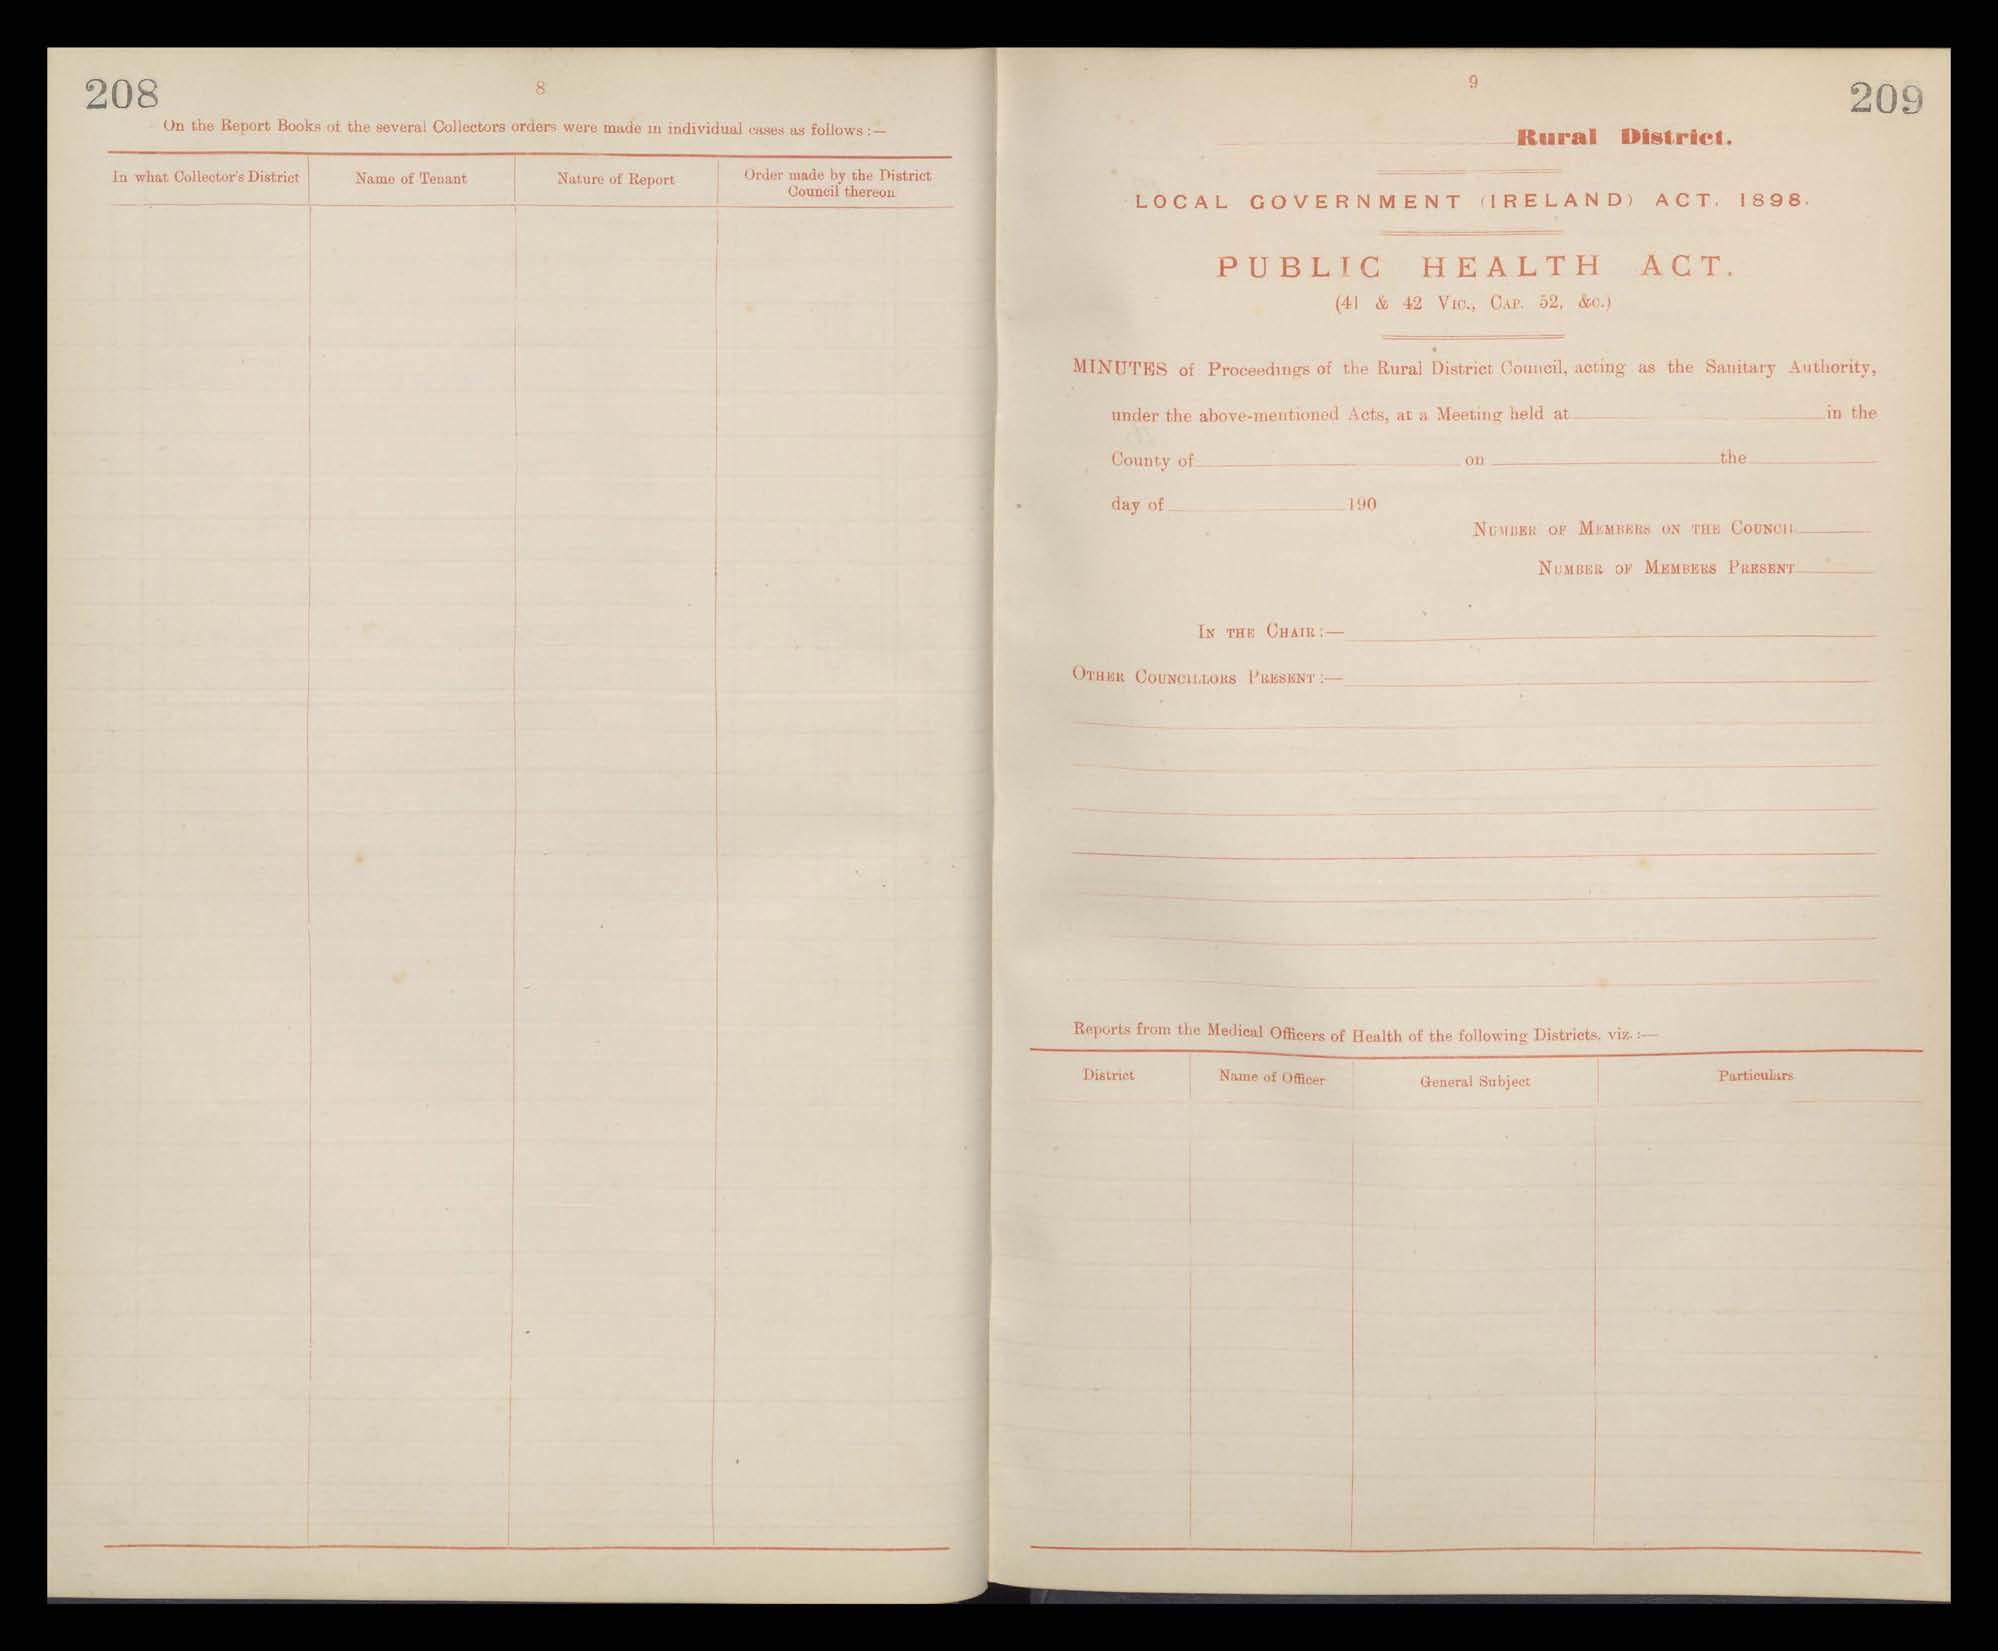 208
8
On the Report Books of the several Collectors orders were made in individual cases as follows :—
In what Collector's District
Name of Tenant
Nature of Report
Order made by the District
Council thereon
9
209
Rural District.
LOCAL GOVERNMENT (IRELAND) ACT, 1898.
PUBLIC HEALTH ACT.
(41 & 42 Vic., Cap. 52, &c.)
MINUTES of Proceedings of the Rural District Council, acting as the Sanitary Authority,
under the above-mentioned Acts, at a Meeting held at in the
County of on the
day of 190
Number of Members on the Council
Number of Members Present
In the Chair :—
Other Councillors Present :—
Reports from the Medical Officers of Health of the following Districts, viz. :—
District
Name of Officer
General Subject
Particulars